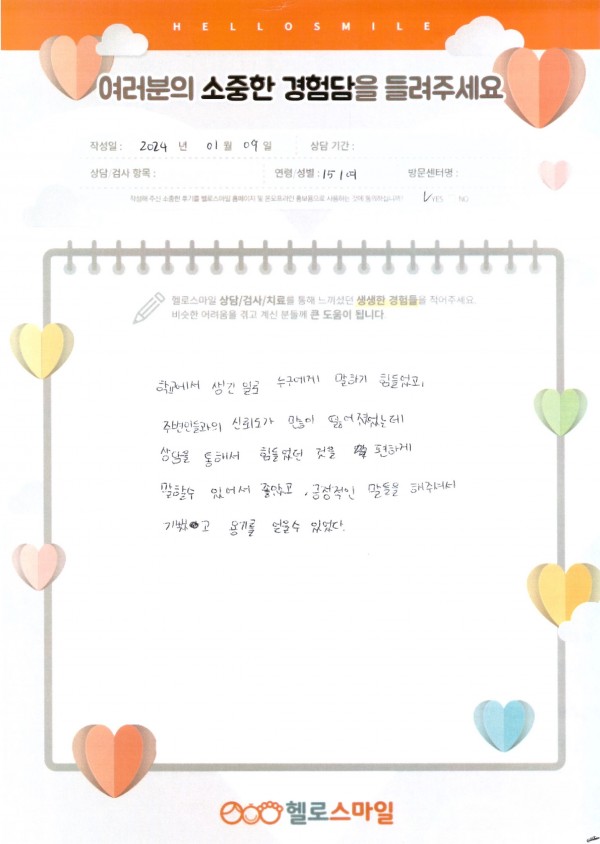 HELLOSMILE
여러분의 소중한 경험담을 들려주세요
작성일 : 2024 년 01 월 09 일 상담 기간 :
상담/검사 항목 : 연령/성별 : 15 / 여 방문센터명 :
작성해 주신 소중한 후기를 헬로스마일 홈페이지 및 온오프라인 홍보용으로 사용하는 것에 동의하십니까? V YES NO
헬로스마일 상담/검사/치료를 통해 느끼셨던 생생한 경험들을 적어주세요.
비슷한 어려움을 겪고 계신 분들께 큰 도움이 됩니다.
학교에서 생긴 일로 누구에게 말하기 힘들었고,
주변인들과의 신뢰도가 많이 떨어졌었는데
상담을 통해서 힘들었던 것을 편하게
말할수 있어서 좋았고, 긍정적인 말들을 해주셔서
기뻤고 용기를 얻을수 있었다.
헬로스마일